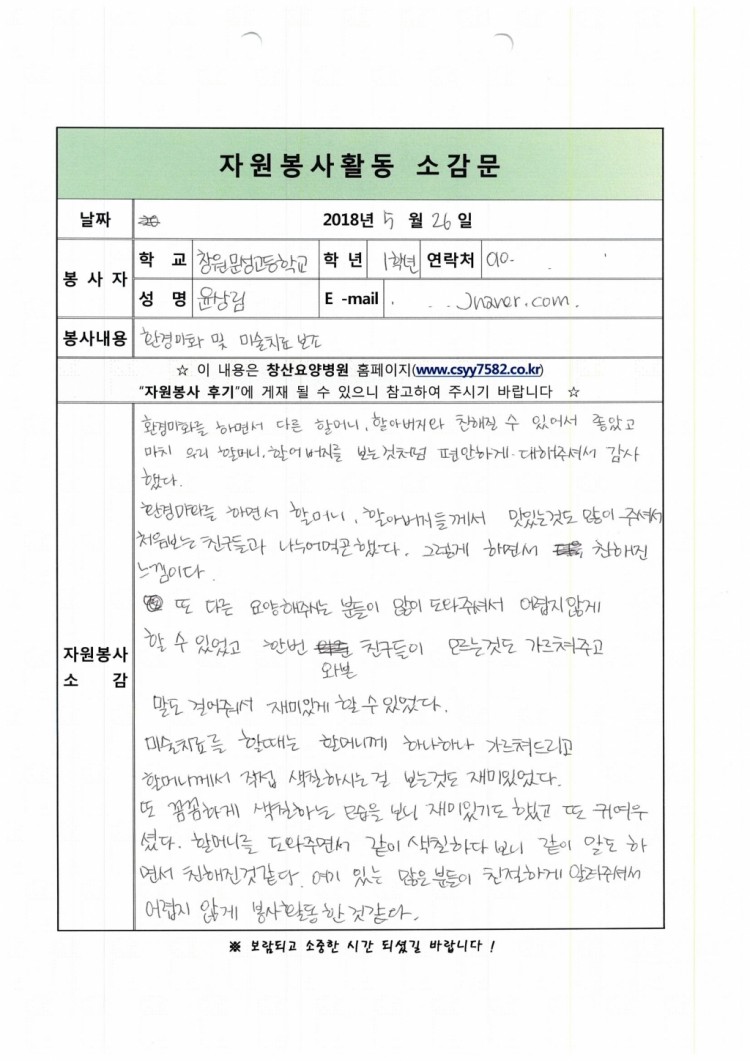 자원봉사활동 소감문
날짜 2018년 5 월 26 일
봉 사 자
학 교 창원문성고등학교 학 년 1학년 연락처 010-
성 명 윤상림 E -mail naver.com.
봉사내용 환경미화 및 미술치료 보조
☆ 이 내용은 창산요양병원 홈페이지(www.csyy7582.co.kr)
"자원봉사 후기"에 게재 될 수 있으니 참고하여 주시기 바랍니다 ☆
자원봉사
소 감
환경미화를 하면서 다른 할머니, 할아버지와 친해질 수 있어서 좋았고
마치 우리 할머니, 할아버지를 보는것처럼 편안하게 대해주셔서 감사
했다.
환경미화를 하면서 할머니, 할아버지들께서 맛있는것도 많이 주셔서
처음보는 친구들과 나누어먹곤했다. 그렇게 하면서 친해진
느낌이다.
또 다른 요양해주시는 분들이 많이 도와주셔서 어렵지않게
할 수 있었고 한번 와본 친구들이 모르는것도 가르쳐주고
말도 걸어줘서 재미있게 할 수 있었다.
미술치료를 할때는 할머니께 하나하나 가르쳐드리고
할머니께서 직접 색칠하시는걸 보는것도 재미있었다.
또 꼼꼼하게 색칠하는 모습을 보니 재미있기도 했고 또 귀여우
셨다. 할머니를 도와주면서 같이 색칠하다 보니 같이 말도 하
면서 친해진것같다. 여기 있는 많은분들이 친절하게 알려주셔서
어렵지 않게 봉사활동 한것같다.
※ 보람되고 소중한 시간 되셨길 바랍니다 !